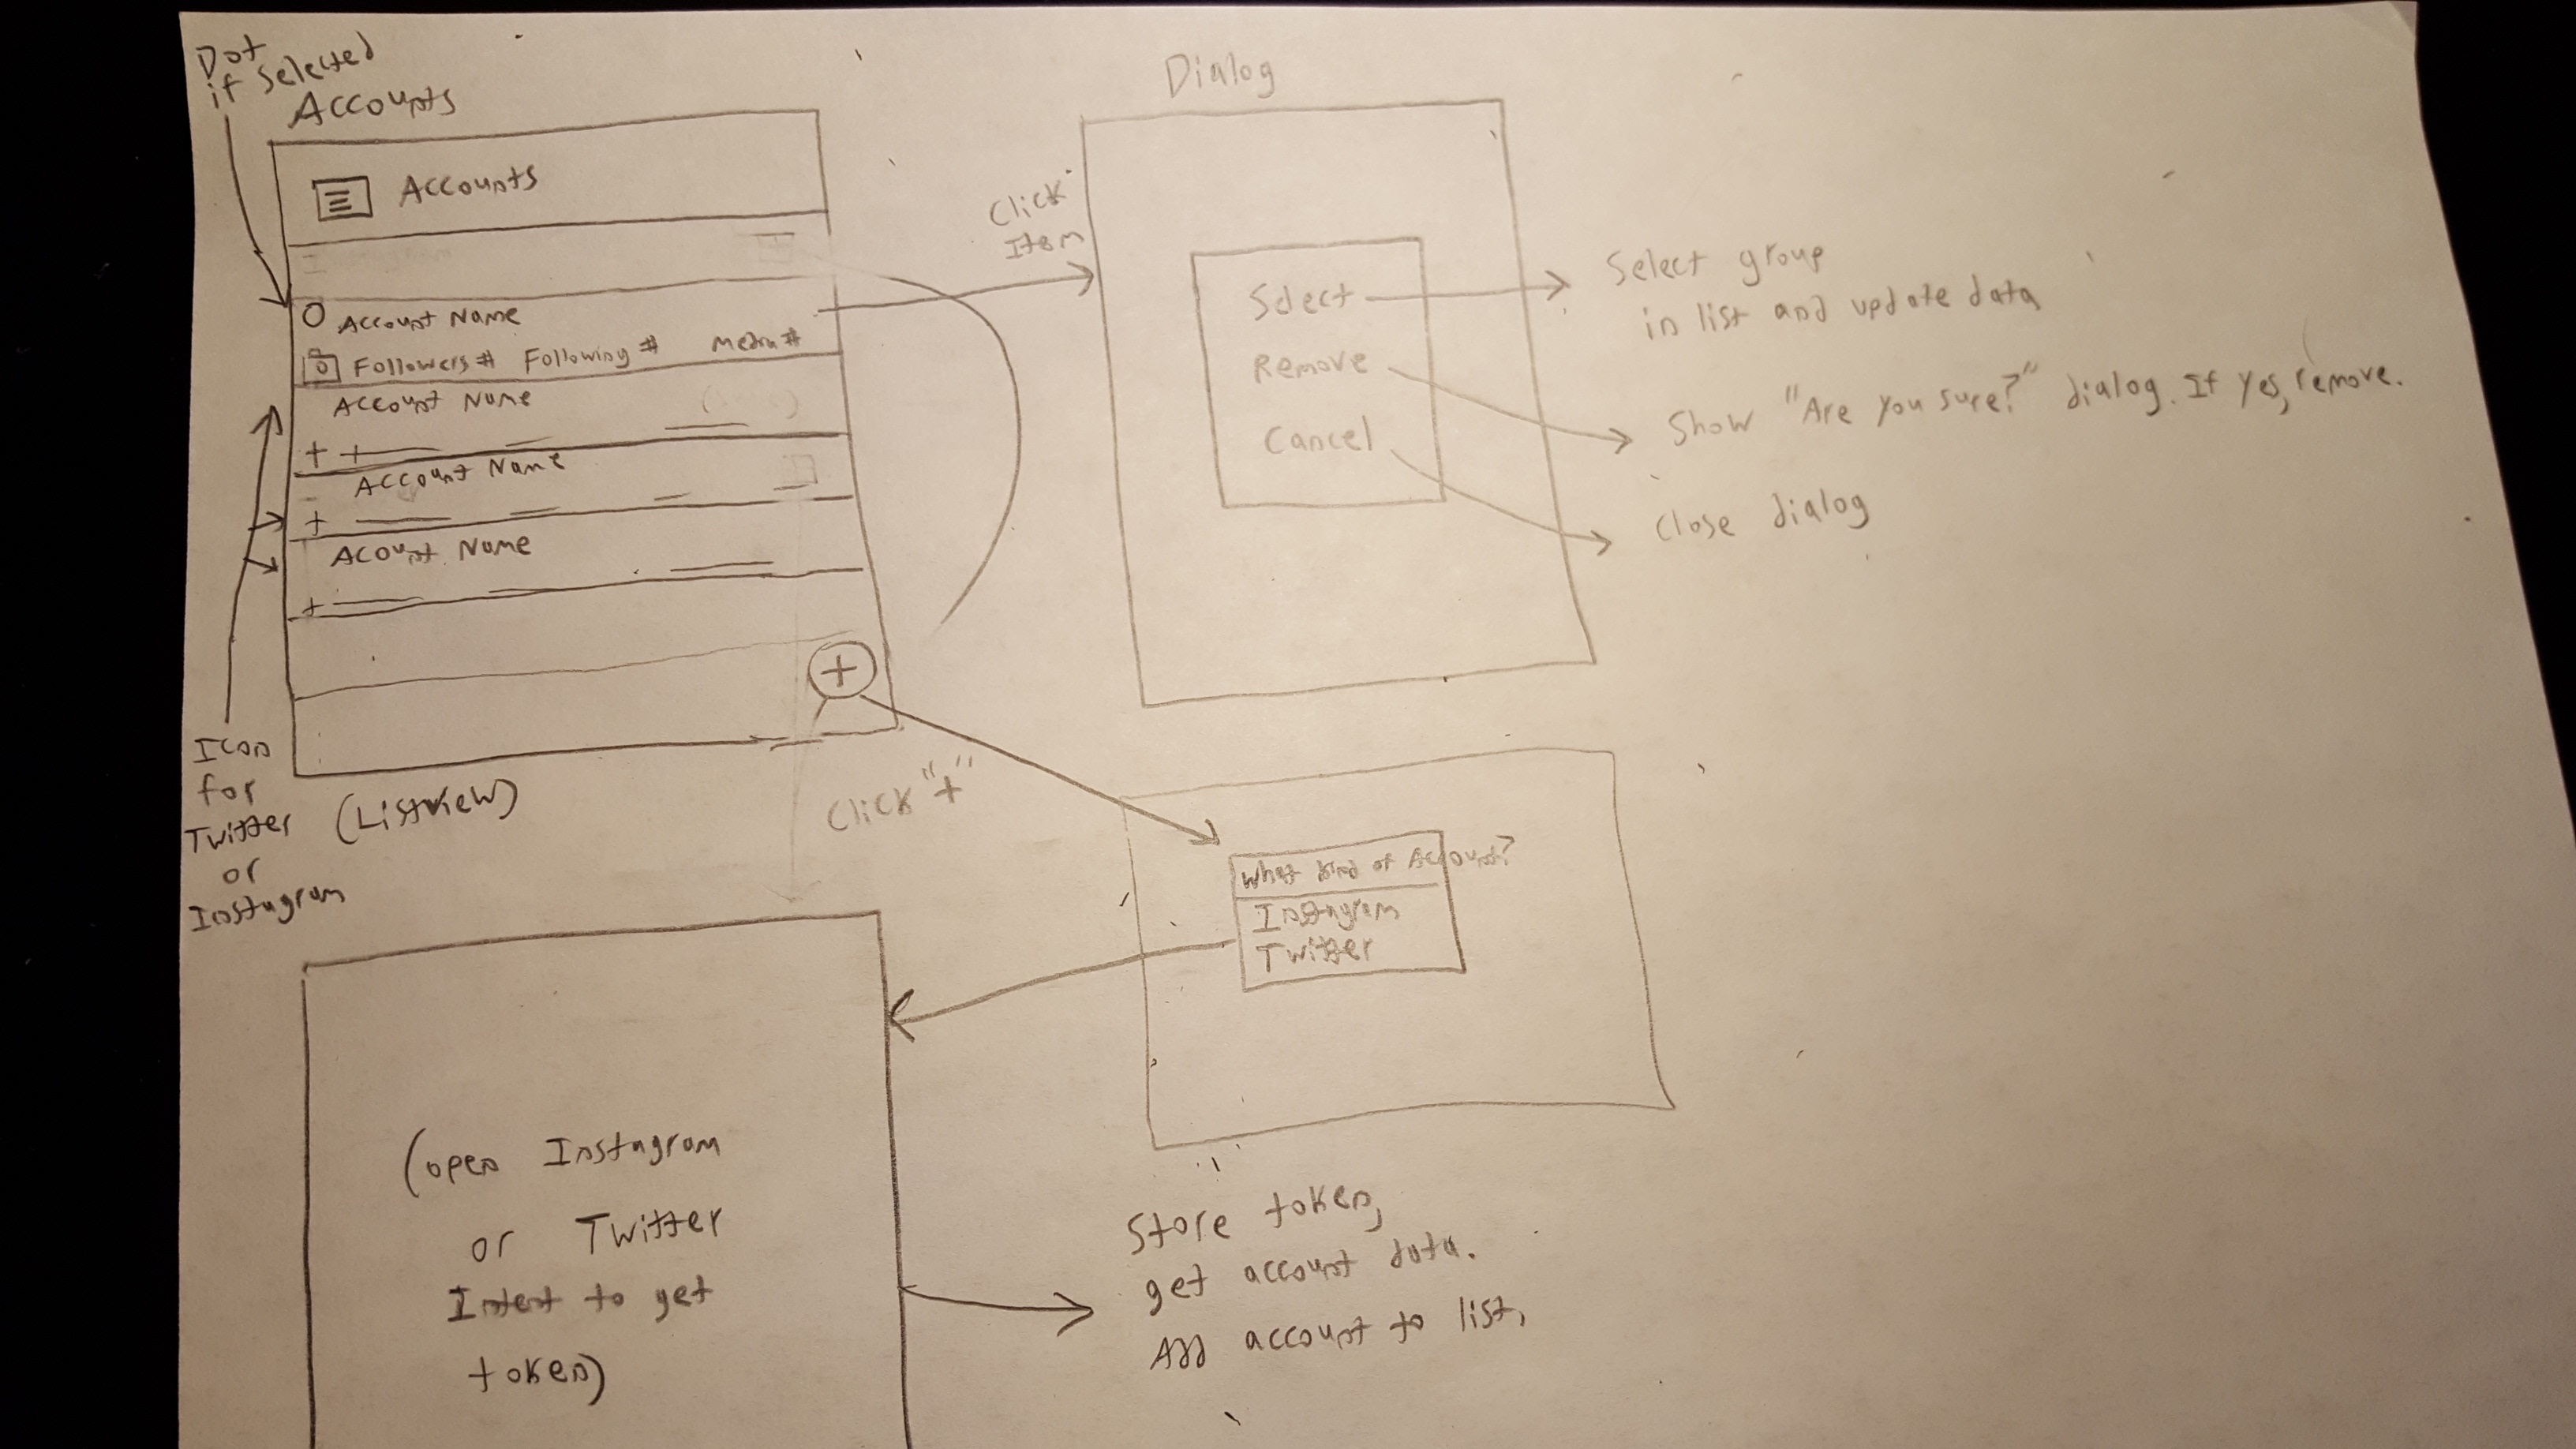 Dot
if Selected
Accounts
Accounts
O Account Name
Followers # Following # Media #
Account Name
+ +
Account Name
+
Acount Name
+
+
Icon
for
Twitter
or
Instagram
(Listview)
Click
Item
Dialog
Select
Remove
Cancel
Select group
in list and update data
Show "Are you sure?" dialog. If yes, remove.
Close dialog
Click "+"
What kind of Account?
Instagram
Twitter
(open Instagram
or Twitter
Intent to get
token)
Store token,
get account data.
Add account to list,